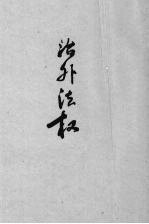 治外法权